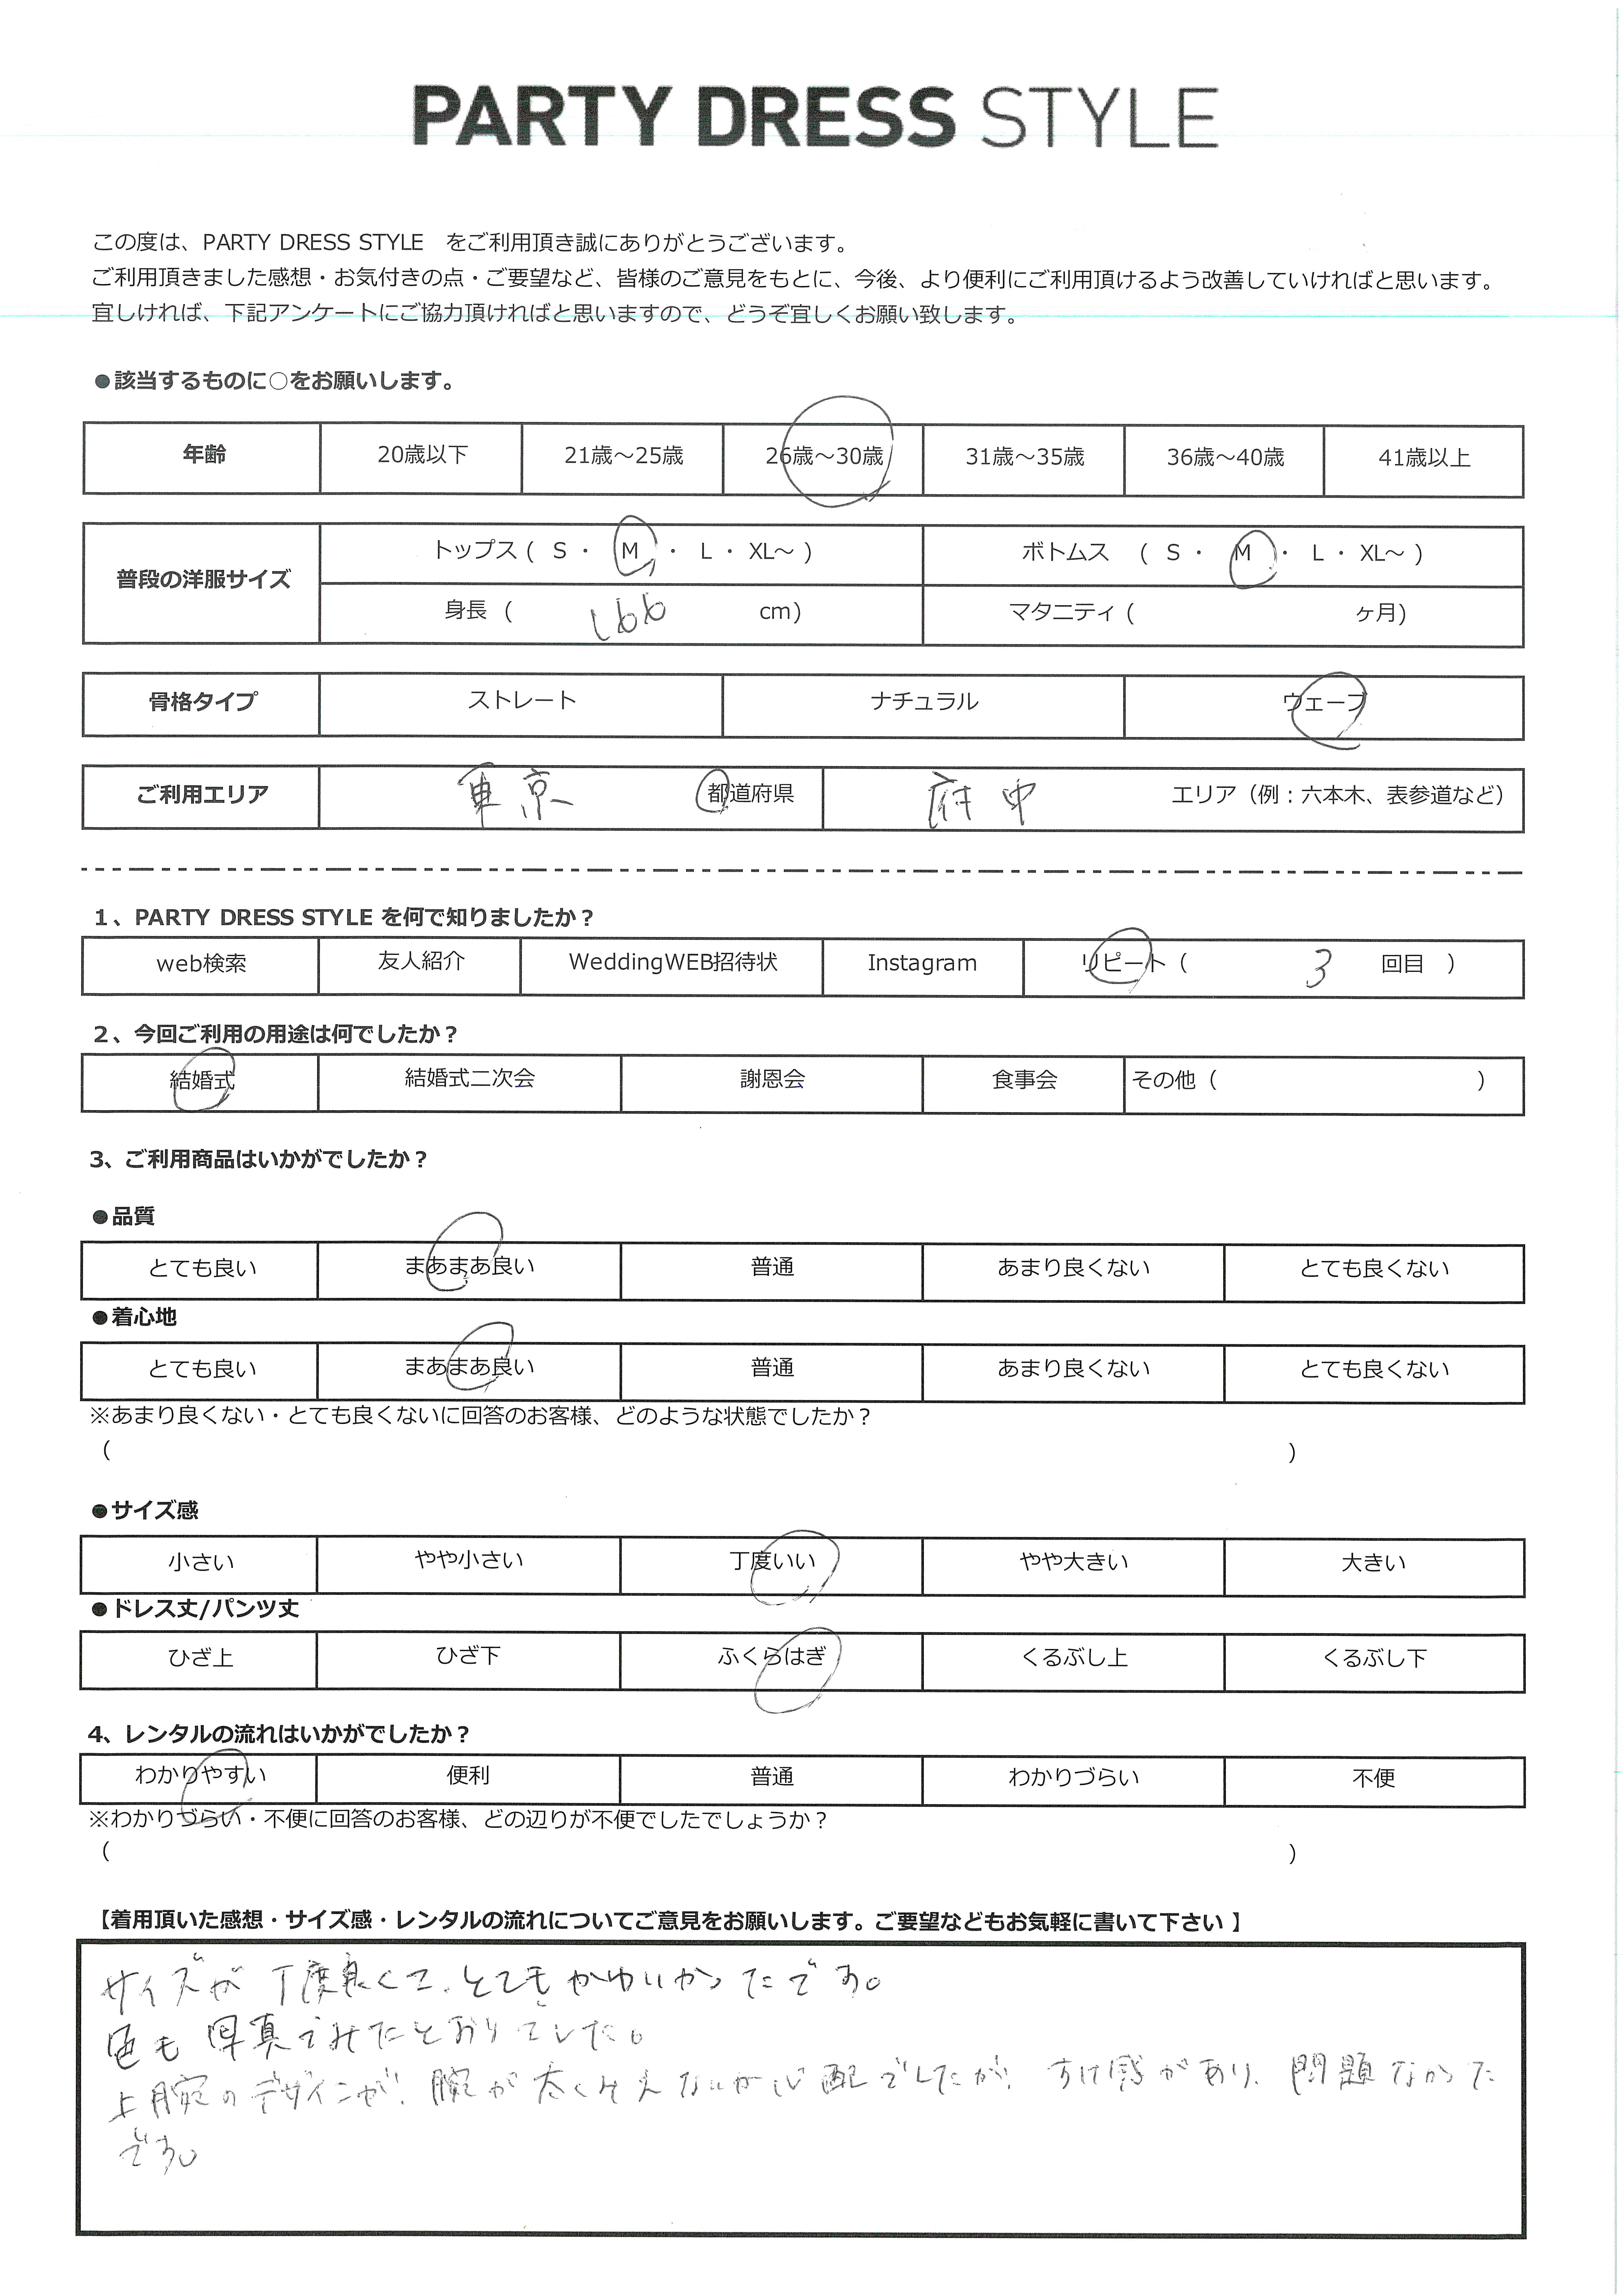 PARTY DRESS STYLE
この度は、PARTY DRESS STYLE　をご利用頂き誠にありがとうございます。
ご利用頂きました感想・お気付きの点・ご要望など、皆様のご意見をもとに、今後、より便利にご利用頂けるよう改善していければと思います。
宜しければ、下記アンケートにご協力頂ければと思いますので、どうぞ宜しくお願い致します。
●該当するものに○をお願いします。
年齢 20歳以下 21歳～25歳 26歳～30歳 31歳～35歳 36歳～40歳 41歳以上
普段の洋服サイズ トップス ( S ・ M ・ L ・ XL～ ) ボトムス ( S ・ M ・ L ・ XL～ )
身長 ( 166 cm) マタニティ ( ヶ月)
骨格タイプ ストレート ナチュラル ウェーブ
ご利用エリア 東京 都道府県 府中 エリア（例：六本木、表参道など）
1、PARTY DRESS STYLE を何で知りましたか？
web検索 友人紹介 WeddingWEB招待状 Instagram リピート ( 3 回目 )
2、今回ご利用の用途は何でしたか？
結婚式 結婚式二次会 謝恩会 食事会 その他 ( )
3、ご利用商品はいかがでしたか？
●品質
とても良い まあまあ良い 普通 あまり良くない とても良くない
●着心地
とても良い まあまあ良い 普通 あまり良くない とても良くない
※あまり良くない・とても良くないに回答のお客様、どのような状態でしたか？
( )
●サイズ感
小さい やや小さい 丁度いい やや大きい 大きい
●ドレス丈/パンツ丈
ひざ上 ひざ下 ふくらはぎ くるぶし上 くるぶし下
4、レンタルの流れはいかがでしたか？
わかりやすい 便利 普通 わかりづらい 不便
※わかりづらい・不便に回答のお客様、どの辺りが不便でしたでしょうか？
( )
【着用頂いた感想・サイズ感・レンタルの流れについてご意見をお願いします。ご要望などもお気軽に書いて下さい 】
サイズが丁度良くて、とてもかわいかったです。
色も写真でみたとおりでした。
上腕のデザインが、腕が太くみえないか心配でしたが、すけ感があり、問題なかった
です。